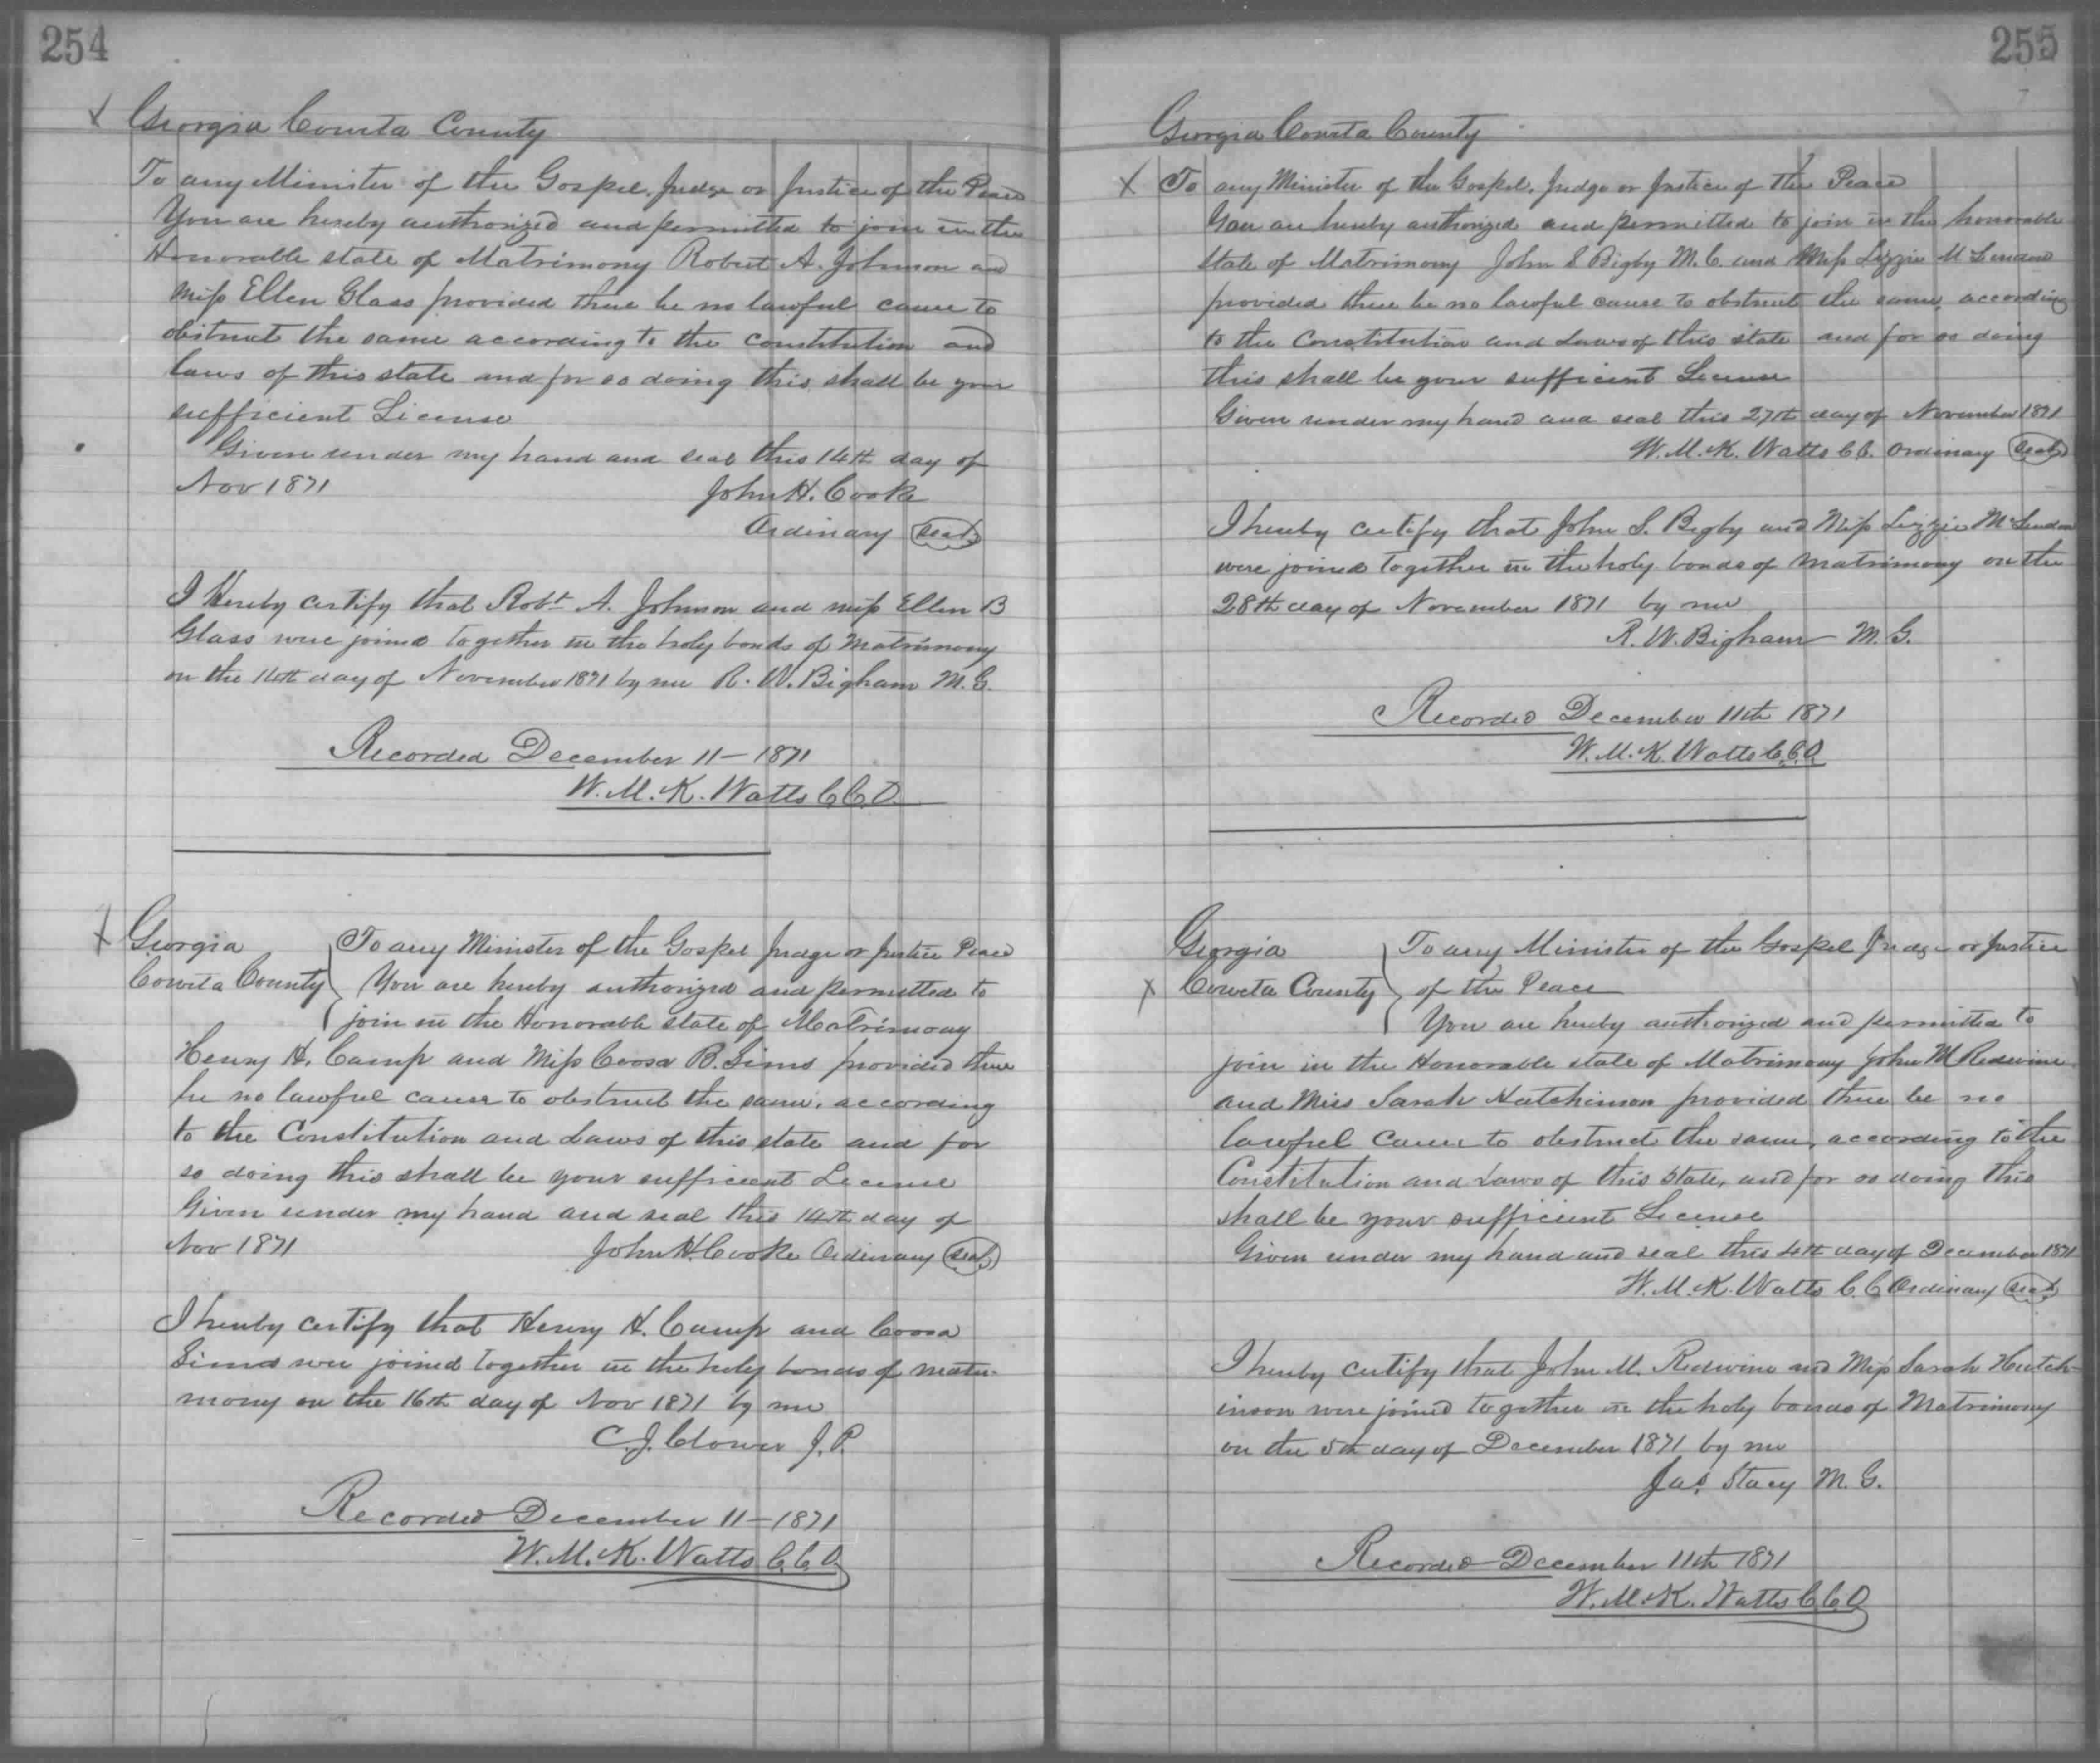 254
Georgia Coweta County
To any Minister of the Gospel, Judge or Justice of the Peace
You are hereby authorized and permitted to join in the
Honorable state of Matrimony Robert A. Johnson and
Miss Ellen Glass provided there be no lawful cause to
obstruct the same according to the constitution and
laws of this state and for so doing this shall be your
sufficient License
Given under my hand and seal this 14th day of
Nov 1871 John H. Cook
Ordinary Seal
I Hereby certify that Robt A. Johnson and miss Ellen B
Glass were joined together in the holy bonds of Matrimony
on the 14th day of November 1871 by me R. W. Bigham M.G.
Recorded December 11 - 1871
W. M. K. Watts C.C.O.
Georgia
Coweta County
To any Minister of the Gospel Judge or Justice Peace
You are hereby authorized and permitted to
join in the Honorable state of Matrimony
Henry H. Camp and Miss Coosa B. Sims provided there
be no lawful cause to obstruct the same, according
to the Constitution and Laws of this state and for
so doing this shall be your sufficient License
Given under my hand and seal this 14th day of
Nov 1871 John H. Cooke Ordinary Seal
I hereby certify that Henry H. Camp and Coosa
Sims were joined together in the holy bonds of matri-
mony on the 16th day of Nov 1871 by me
C. J. Clower J. P.
Recorded December 11 - 1871
W. M. K. Watts C.C.O
255
Georgia Coweta County
To any Minister of the Gospel, Judge or Justice of the Peace
You are hereby authorized and permitted to join in the honorable
state of Matrimony John S Bigby M.C. and Miss Lizzie McLendon
provided there be no lawful cause to obstruct the same, according
to the Constitution and Laws of this state and for so doing
this shall be your sufficient License
Given under my hand and seal this 27th day of November 1871
W. M. K. Watts C.C. Ordinary Seal
I hereby certify that John S. Bigby and Miss Lizzie McLendon
were joined together in the holy bonds of matrimony on the
28th day of November 1871 by me
R. W. Bigham M. G.
Recorded December 11th 1871
W. M. K. Watts C.C.O
Georgia
Coweta County
To any Minister of the Gospel Judge or Justice
of the Peace
You are hereby authorized and permitted to
join in the Honorable state of Matrimony John M Redwine
and Miss Sarah Hutchinson provided there be no
lawful cause to obstruct the same, according to the
Constitution and Laws of this state, and for so doing this
shall be your sufficient License
Given under my hand and seal this 4th day of December 1871
W. M. K. Watts C.C Ordinary Seal
I hereby certify that John M. Redwine and Miss Sarah Hutch-
inson were joined together in the holy bonds of Matrimony
on the 5th day of December 1871 by me
Jas. Stacy M. G.
Recorded December 11th 1871
W. M. K. Watts C.C.O